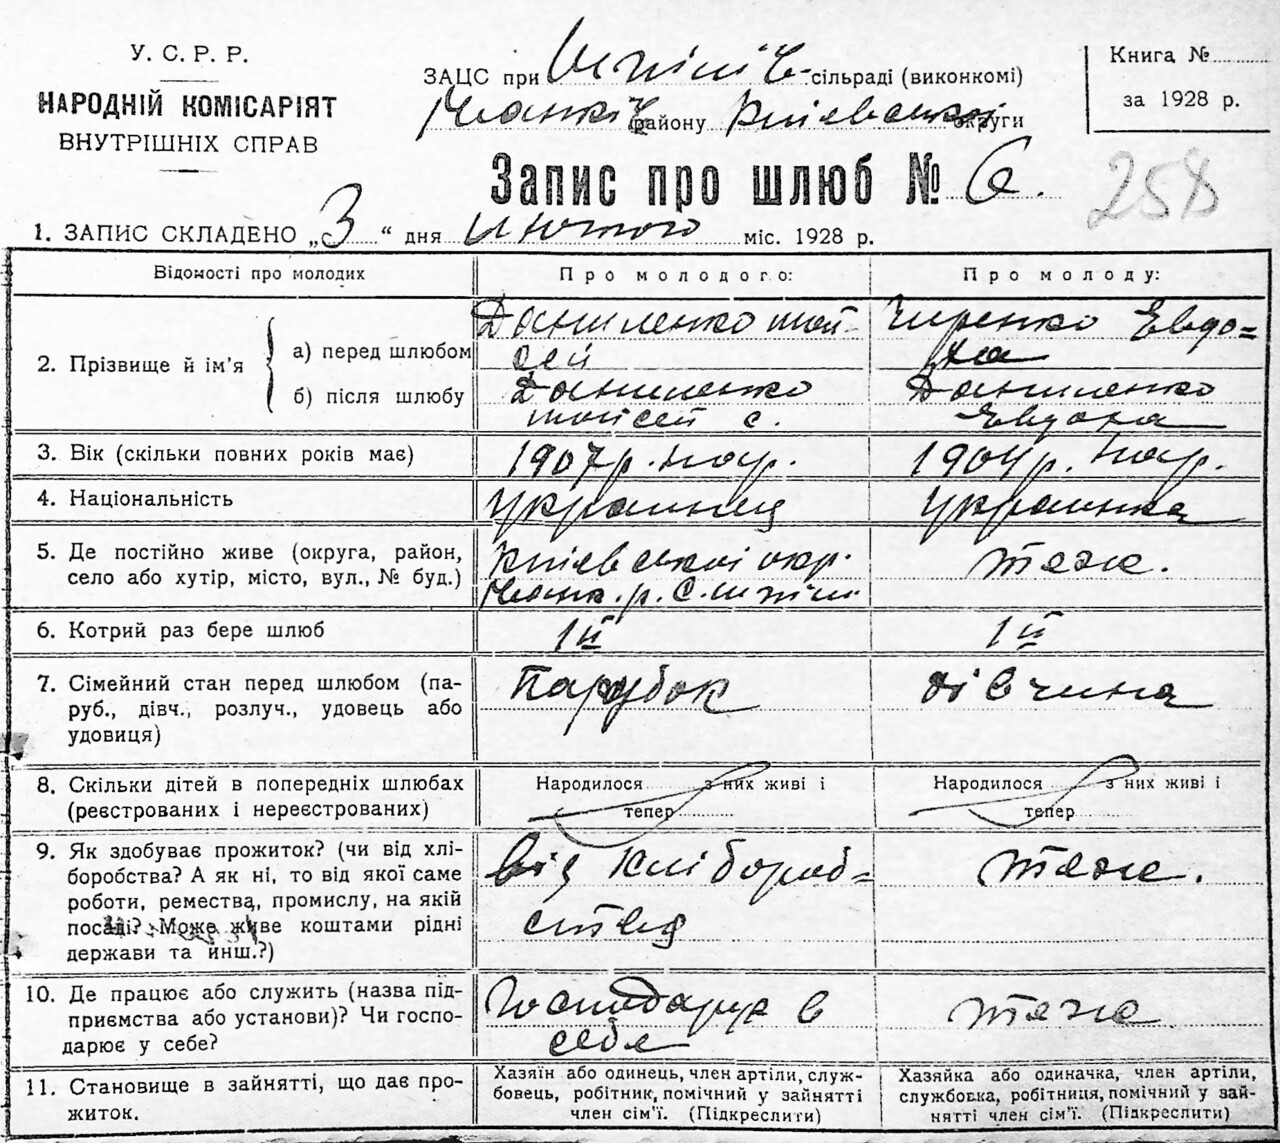 У. С. Р. Р.
НАРОДНІЙ КОМІСАРІЯТ
ВНУТРІШНІХ СПРАВ
ЗАЦС при сільраді (виконкомі)
району Київської округи
Книга №
за 1928 р.
Запис про шлюб № 6.
258
1. ЗАПИС СКЛАДЕНО „3“ дня лютого міс. 1928 р.
Відомості про молодих
Про молодого:
Про молоду:
2. Прізвище й ім'я
а) перед шлюбом
Даниленко Мой-
сей
Чиренко Евдо=
ха
б) після шлюбу
Даниленко
Мойсей с.
Даниленко
Евдоха
3. Вік (скільки повних років має)
1907 р. нар.
1904 р. нар.
4. Національність
Українец
Українка
5. Де постійно живе (округа, район,
село або хутір, місто, вул., № буд.)
Київської окр.
р. С.
теж.
6. Котрий раз бере шлюб
1й
1й
7. Сімейний стан перед шлюбом (па-
руб., дівч., розлуч., удовець або
удовиця)
Парубок
дівчина
8. Скільки дітей в попередніх шлюбах
(реєстрованих і нереєстрованих)
Народилося з них живі і
тепер
Народилося з них живі і
тепер
9. Як здобуває прожиток? (чи від хлі-
боробства? А як ні, то від якої саме
роботи, ремества, промислу, на якій
посаді? Може живе коштами рідні
держави та инш.?)
Від хлібороб=
ства
теж.
10. Де працює або служить (назва під-
приємства або установи)? Чи госпо-
дарює у себе?
Господарює в
себе
теж
11. Становище в зайнятті, що дає про-
житок.
Хазяїн або одинець, член артіли, служ-
бовець, робітник, помічний у зайнятті
член сім'ї. (Підкреслити)
Хазяйка або одиначка, член артілі,
службовка, робітниця, помічний у зай-
нятті член сім'ї. (Підкреслити)